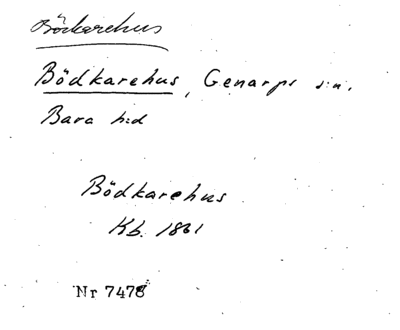 Bödkarehus
Bödkarehus, Genarps s:n.
Bara h:d
Bödkarehus
Kb. 1861
Nr 7478